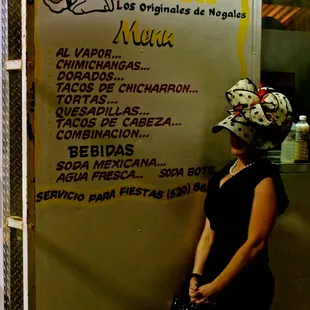 Los Originales de Nogales
Menu
AL VAPOR...
CHIMICHANGAS...
DORADOS...
TACOS DE CHICHARRON...
TORTAS...
QUESADILLAS...
TACOS DE CABEZA...
COMBINACION...
BEBIDAS
SODA MEXICANA...
AGUA FRESCA... SODA BOTE
SERVICIO PARA FIESTAS (520)